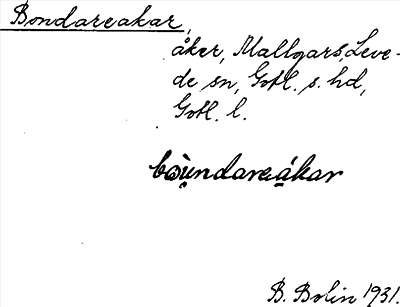 Bondareakar,
åker, Mallgars, Leve-
de sn, Gotl. s. hd,
Gotl. l.
bòu̯ndareákar
B. Bolin 1931.